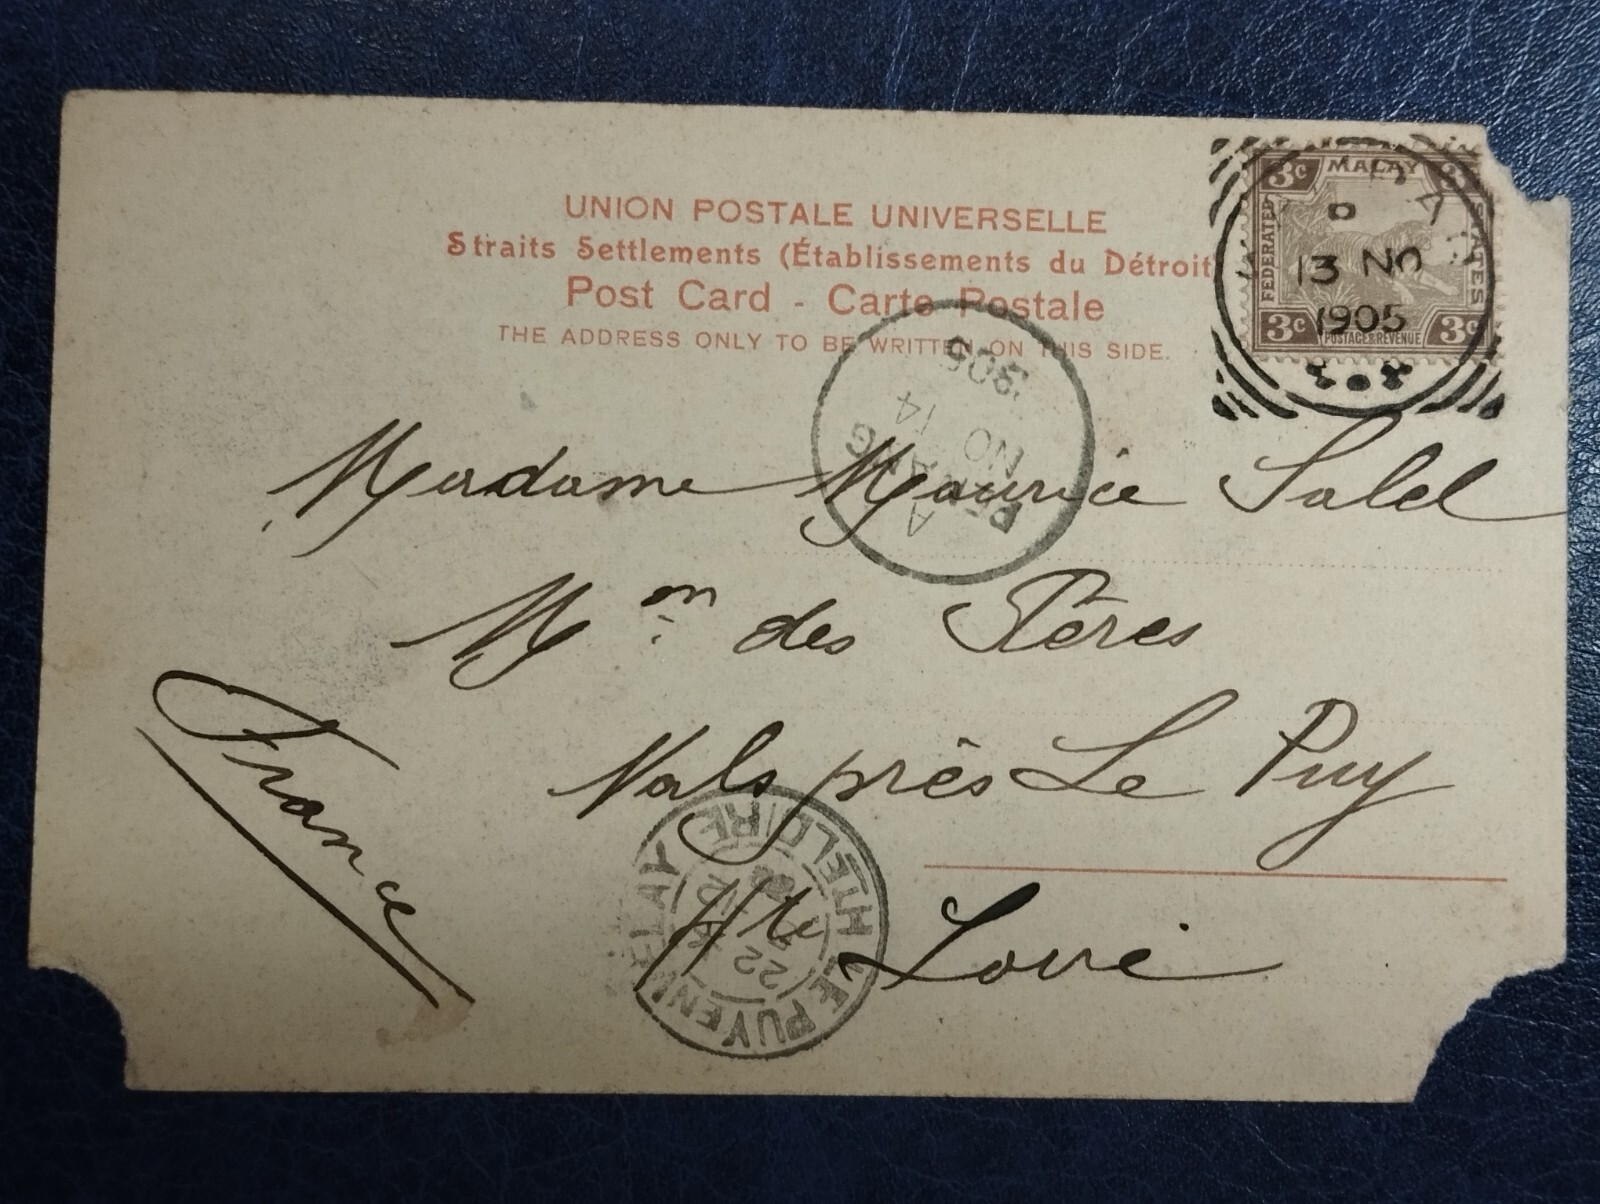 UNION POSTALE UNIVERSELLE
Straits Settlements (Établissements du Détroit
Post Card - Carte Postale
THE ADDRESS ONLY TO BE WRITTEN ON THIS SIDE.
3c MALAY 3c
FEDERATED
STATES
3c POSTAGE & REVENUE 3c
D
13 NO
1905
A
PENANG
NO 14
905
Madame Maurice Salel
Mon des Pères
Vals près Le Puy
Hte Loire
France
LE PUY EN VELAY
HTE LOIRE
22